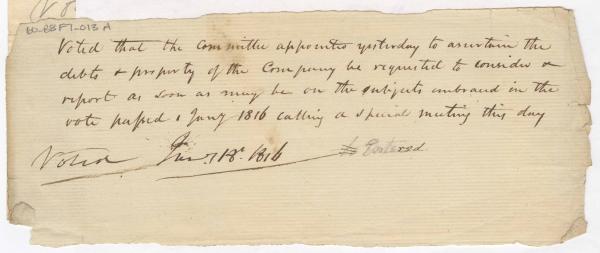 V 8
60-B3F7-013A
Voted that the Committee appointed yesterday to ascertain the
debts & property of the Company be requested to consider &
report as soon as may be on the subjects embraced in the
vote passed 1 Jany 1816 calling a special meeting this day
Voted Jany 18. 1816 Entered